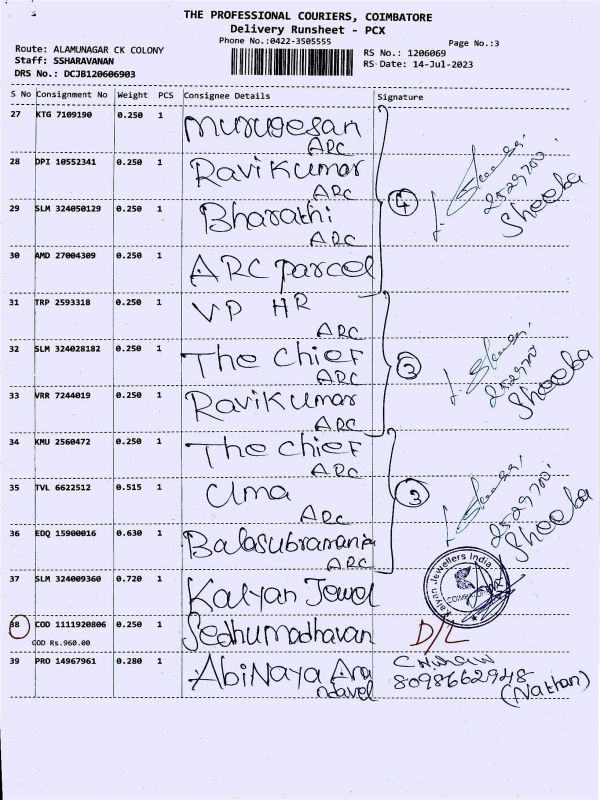 THE PROFESSIONAL COURIERS, COIMBATORE
Delivery Runsheet - PCX
Phone No.:0422-3505555
Page No.:3
Route: ALAMUNAGAR CK COLONY
Staff: SSHARAVANAN
DRS No.: DCJB120606903
RS No.: 1206069
RS Date: 14-Jul-2023
S No Consignment No Weight PCS Consignee Details Signature
27 KTG 7109190 0.250 1 Murugesan
ARC
28 DPI 10552341 0.250 1 Ravi Kumar
ARC
29 SLM 324050129 0.250 1 Bharathi
ARC
4
2529700
Shooba
30 AMD 27004309 0.250 1 ARC parcel
31 TRP 2593318 0.250 1 VP HR
ARC
32 SLM 324028182 0.250 1 The Chief
ARC
3
2529700
Shooba
33 VRR 7244019 0.250 1 Ravi Kumar
ARC
34 KMU 2560472 0.250 1 The Chief
ARC
35 TVL 6622512 0.515 1 Uma
ARC
3
2529700
Shooba
36 EDQ 15900016 0.630 1 Balasubramania
ARC
37 SLM 324009360 0.720 1 Kalyan Jewel
Kalyan Jewellers India
COIMBATORE
38 COD 1111920806 0.250 1 Sedhumadhavan D/L
COD Rs.960.00
39 PRO 14967961 0.280 1 Abinaya Ara
ndavel
8098662948
(Nathan)